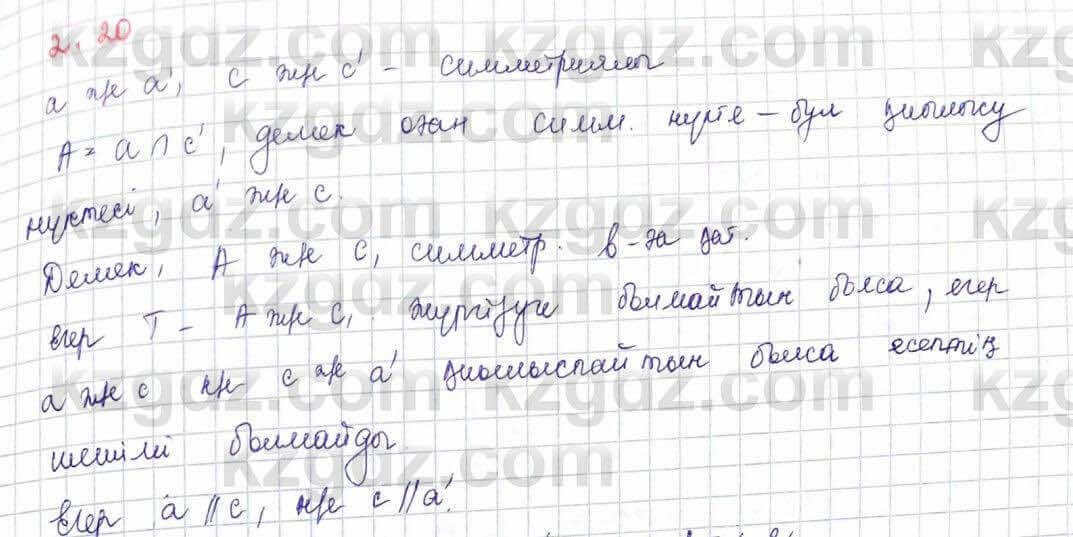 2.20
a жн a', c жн c' – симметриялы
A = a ∩ c', демек оған симм. нүкте – бұл қиылысу
нүктесі, a' жн c.
Демек, A жн C, симметр. b-ға қат.
егер T – A жн C, жүргізуге болмайтын болса, егер
a жн c нж c жн a' қиылыспайтын болса есептің
шешімі болмайды.
Егер a // c, нж c // a'.
kzgdz.com